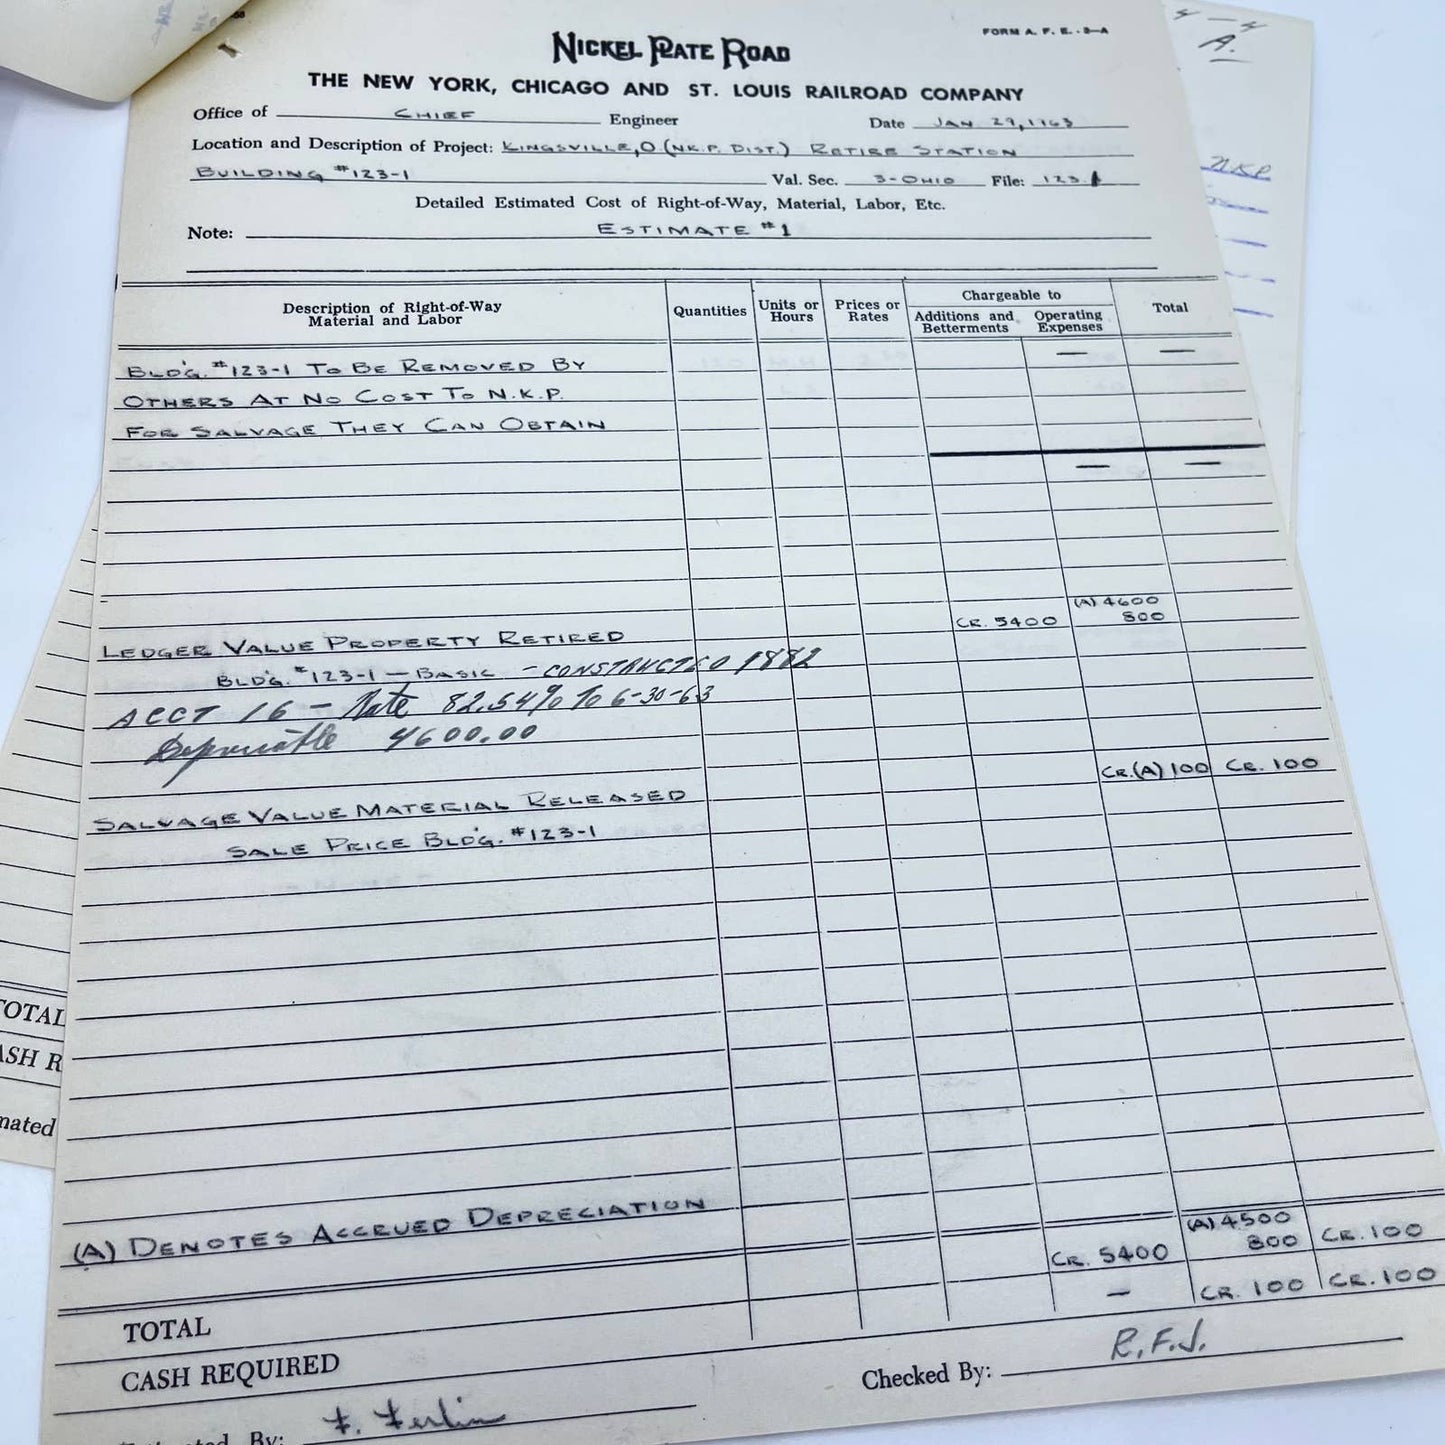 FORM A. F. E. - 3—A
NICKEL PLATE ROAD
THE NEW YORK, CHICAGO AND ST. LOUIS RAILROAD COMPANY
Office of CHIEF Engineer Date JAN 29, 1963
Location and Description of Project: KINGSVILLE, O (N.K.P. DIST.) RETIRE STATION
BUILDING #123-1 Val. Sec. 3-OHIO File: 123.1
Detailed Estimated Cost of Right-of-Way, Material, Labor, Etc.
Note: ESTIMATE #1
Description of Right-of-Way Material and Labor Quantities Units or Hours Prices or Rates Chargeable to Additions and Betterments Operating Expenses Total
BLD'G. #123-1 TO BE REMOVED BY — —
OTHERS AT NO COST TO N.K.P.
FOR SALVAGE THEY CAN OBTAIN
— —
(A) 4600
LEDGER VALUE PROPERTY RETIRED CR. 5400 800
BLD'G. #123-1 — BASIC - CONSTRUCTED 1882
ACCT 16 - Rate 82.54% To 6-30-63
Depreciable 4600.00
SALVAGE VALUE MATERIAL RELEASED CR.(A) 100 CR. 100
SALE PRICE BLD'G. #123-1
(A) DENOTES ACCRUED DEPRECIATION
TOTAL CR. 5400 (A) 4500 800 CR. 100
CASH REQUIRED — CR. 100 CR. 100
By: Checked By: R.F.J.
4-4
A.
NKP
TOTAL
ASH R
mated